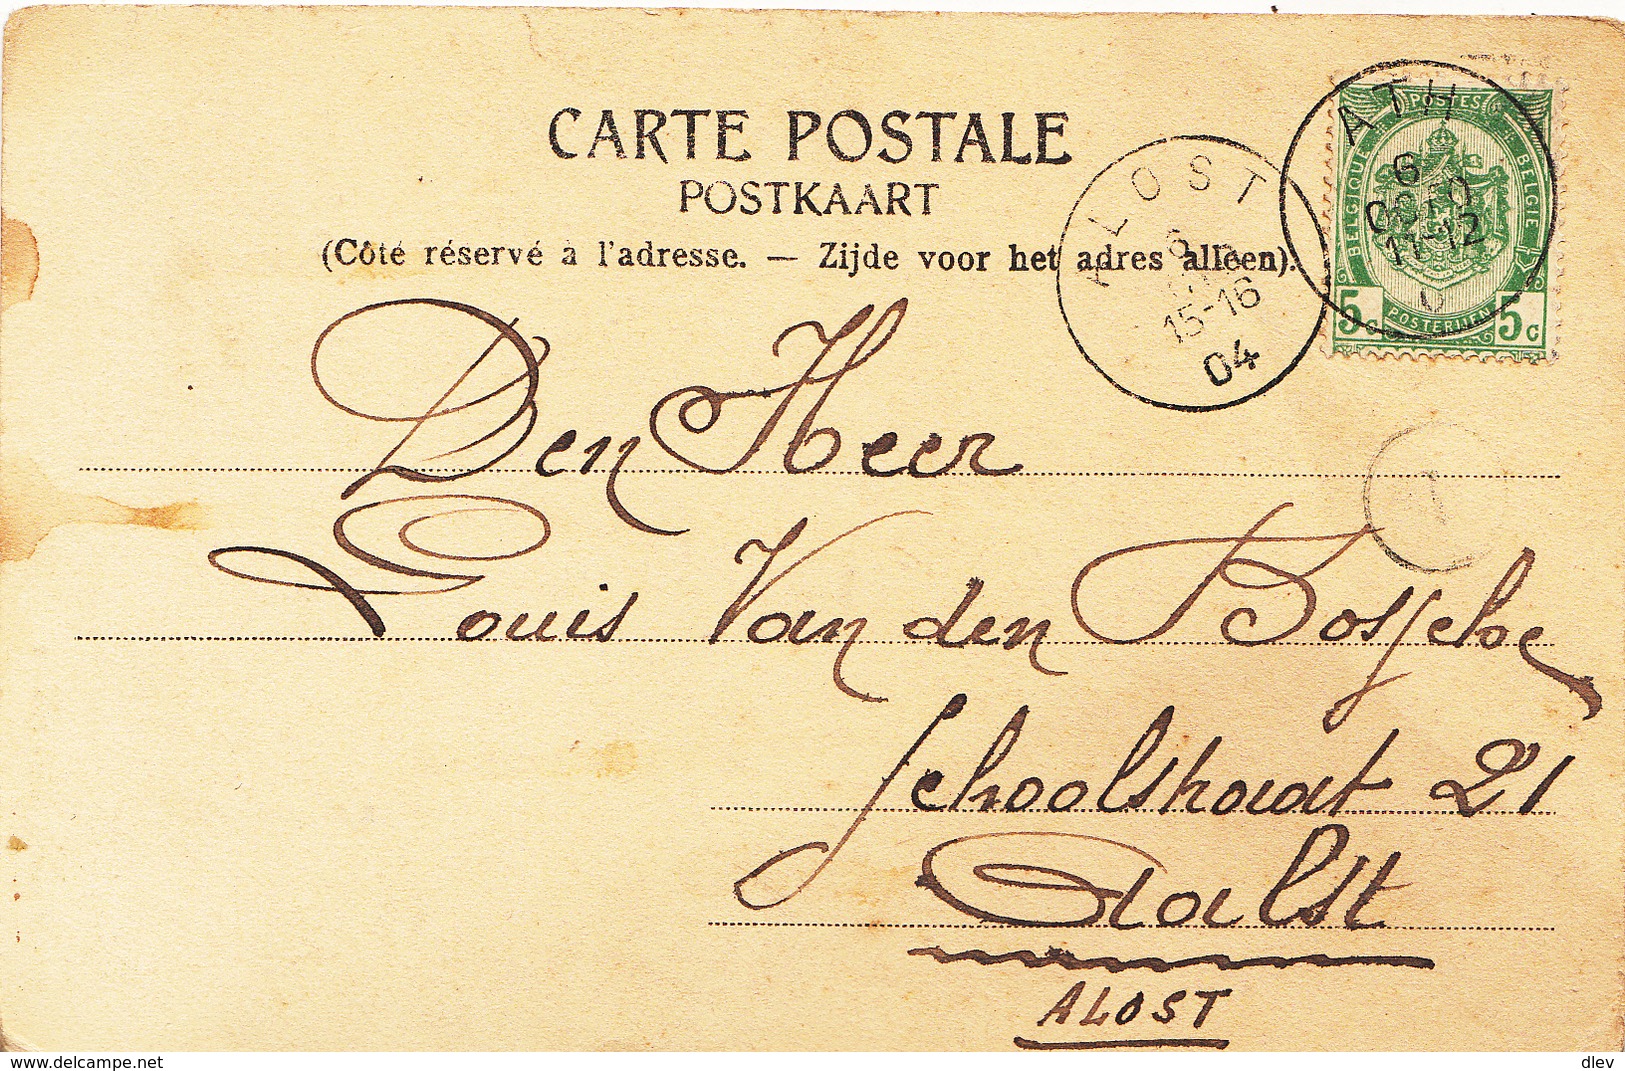 CARTE POSTALE
POSTKAART
(Côté réservé à l'adresse. — Zijde voor het adres alleen).
ALOST
6
15-16
04
ATH
6
OCTO
11-12
POSTES
BELGIQUE
BELGIË
5c
POSTERIJEN
5c
Den Heer
Louis Van den Bossche
Schoolstraat 21
Aalst
ALOST
www.delcampe.net
dlev